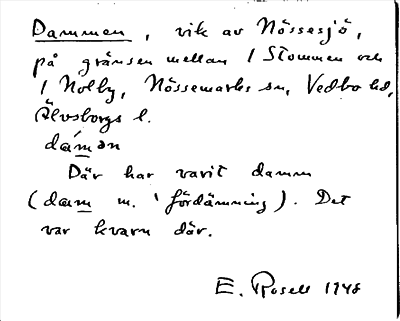 Dammen, vik av Nössesjö,
på gränsen mellan 1 Stommen och
1 Nolby, Nössemarks sn, Vedbo hd,
Älvsborgs l.
dámən
Där har varit damm
(dam m. 'fördämning). Det
var kvarn där.
E. Rosell 1948